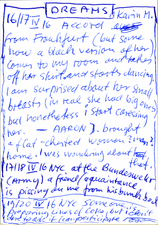 DREAMS Karin M.
16/17 IV 16 ACCORD
from Frankfurt (but some
how a black version of her
comes to my room and takes
off her shirt and starts dancing
I am surprised about her small
breasts (in real she had big ones)
but nonetheless I start caressing
her. — AARON brought
a flat-chested woman
home. I was wondering about that
17/18 IV 16 NYC, at the Bundeswehr
(Army) a friend/aquaintance
is pissing on me from his bunk bed
19/20 IV 16 NYC Someone